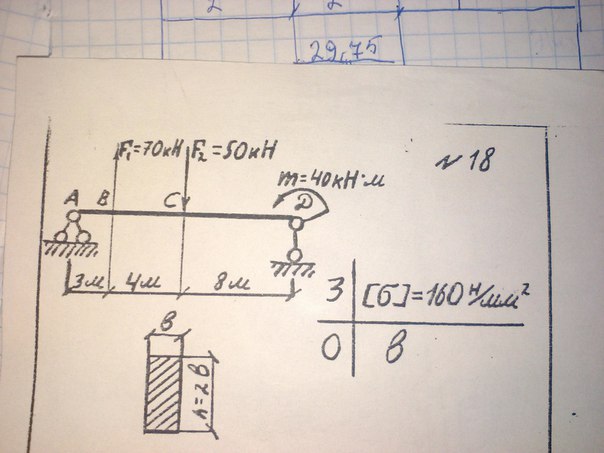 2 2
29,75
F₁=70кН F₂=50кН
№ 18
m=40кН·м
A B C D
3м 4м 8м
З [б]=160 н/мм²
О в
в
h=2в